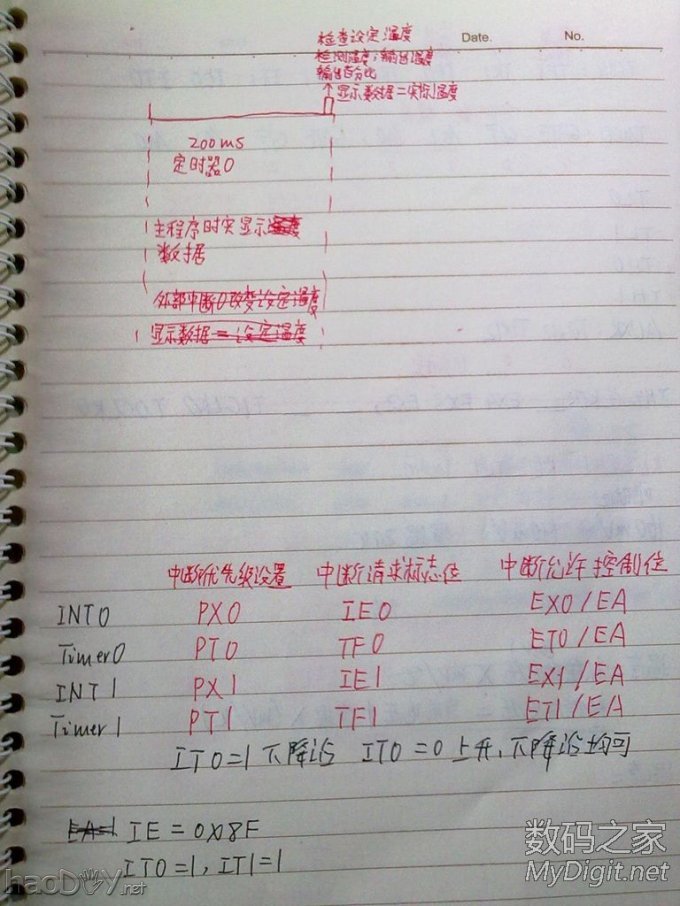 Date. No.
检查设定温度
检测温度;输出温度
输出百分比
显示数据=实际温度
200ms
定时器0
主程序时实显示温度
数据
外部中断0改变设定温度
显示数据=设定温度
中断优先级设置 中断请求标志位 中断允许控制位
INT0 PX0 IE0 EX0/EA
Timer0 PT0 TF0 ET0/EA
INT1 PX1 IE1 EX1/EA
Timer1 PT1 TF1 ET1/EA
IT0=1 下降沿 IT0=0 上升,下降沿均可
EA=1 IE=0X8F
IT0=1,IT1=1
数码之家
MyDigit.net
haoDIY.net